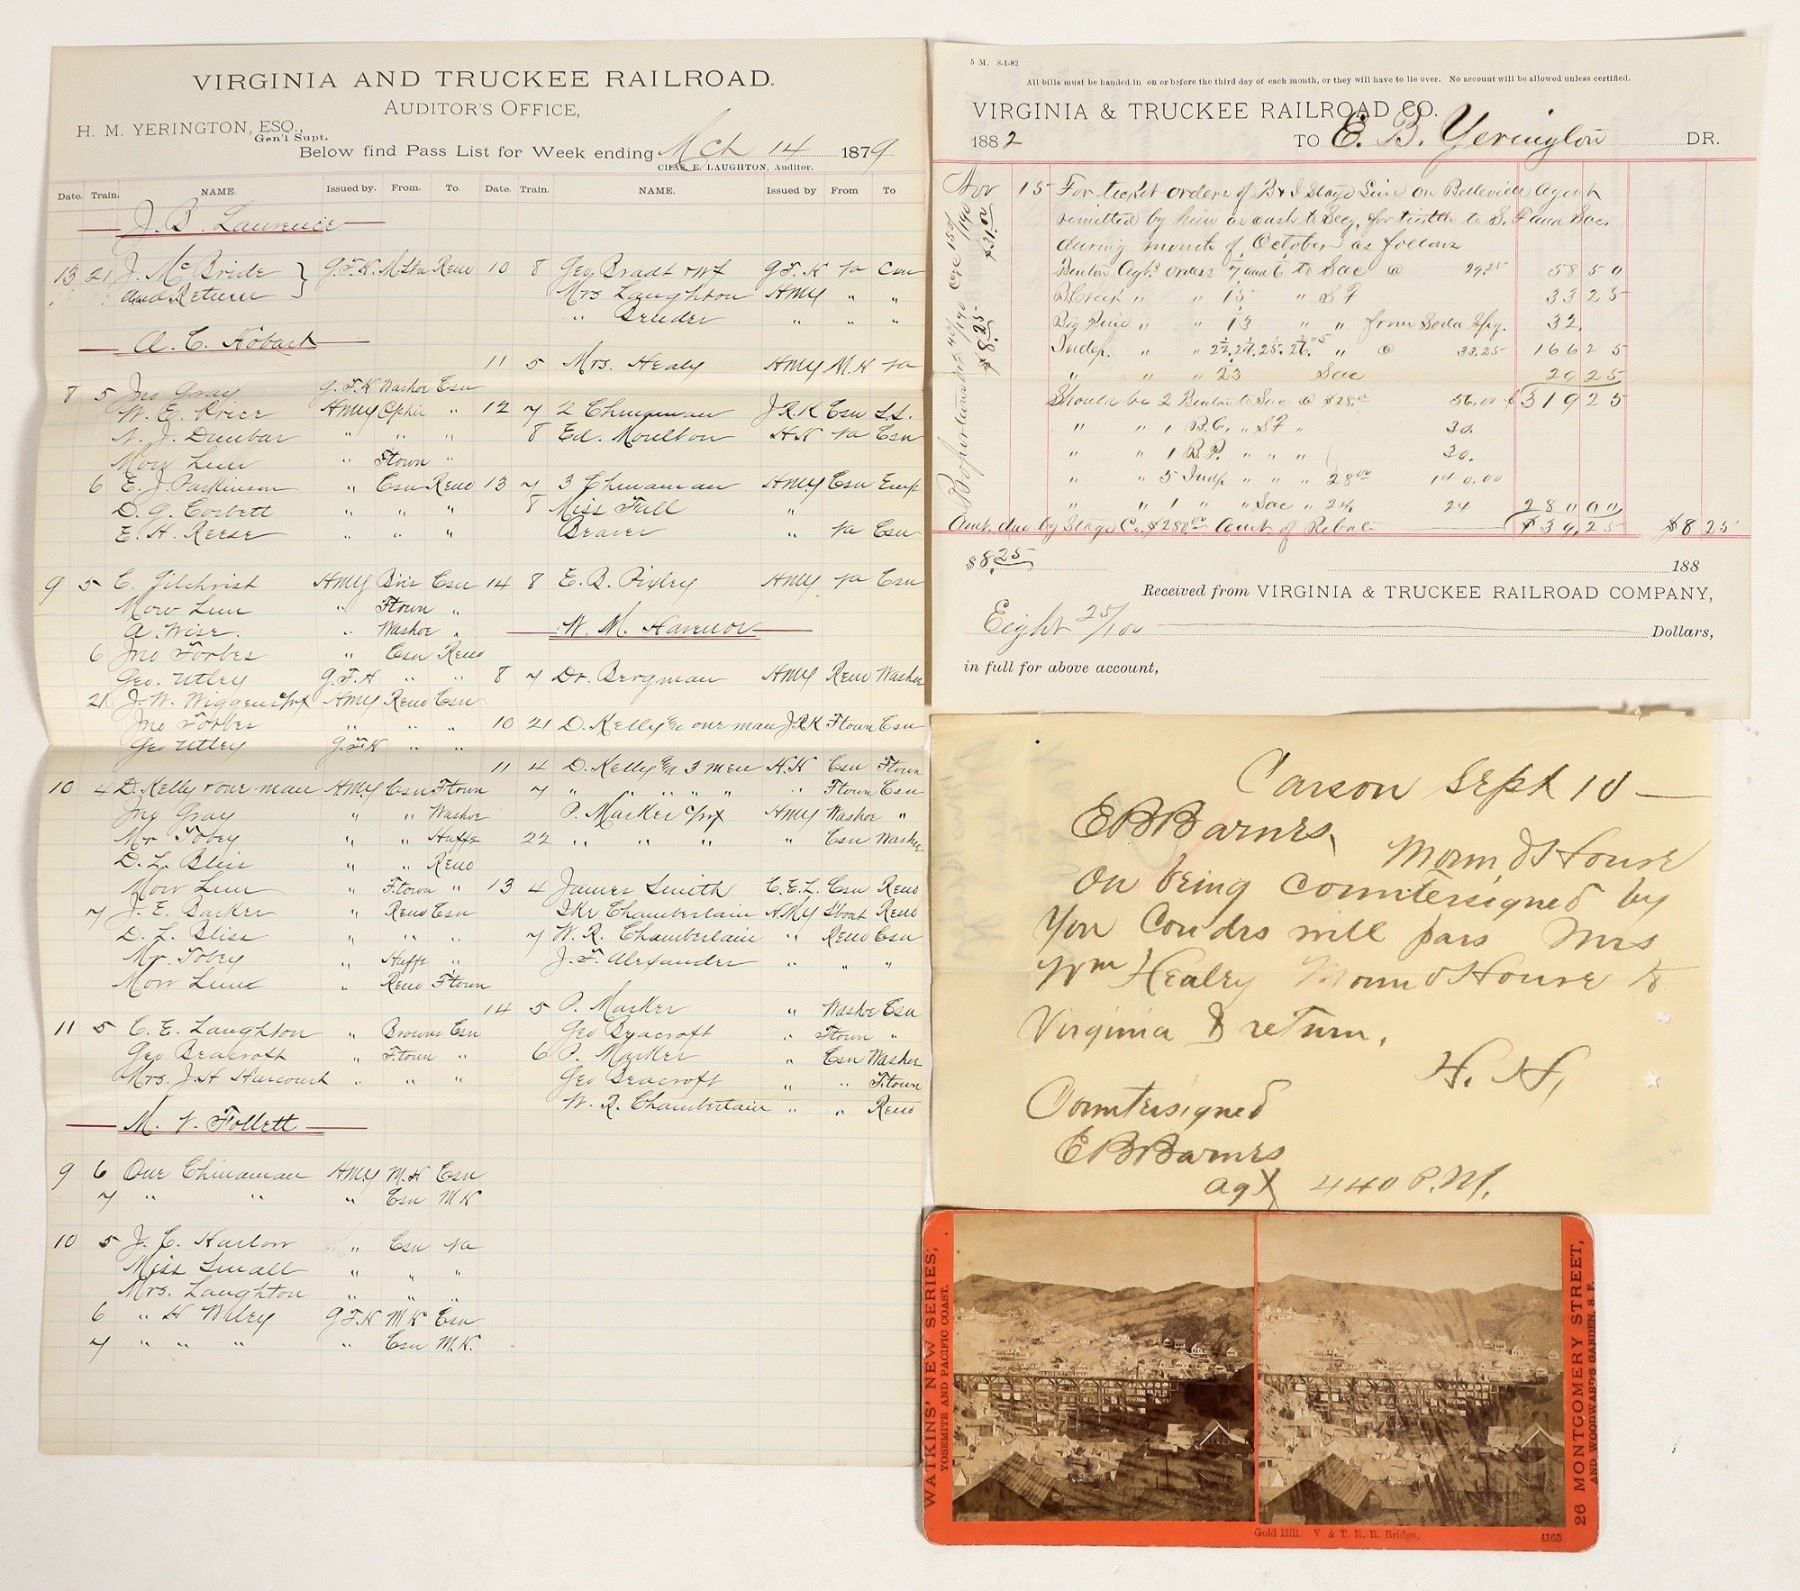 VIRGINIA AND TRUCKEE RAILROAD.
AUDITOR'S OFFICE,
H. M. YERINGTON, ESQ.,
Gen'l Supt.
Below find Pass List for Week ending Mch 14 1879
CHAS. E. LAUGHTON, Auditor.
Date. Train. NAME. Issued by. From. To. Date. Train. NAME. Issued by From To
J. B. Laurence
13 21 J. McBride G.F.K. Reno
and Return
A. C. Hobart
8 5 Jno Gray G.F.K Washoe Csn
W. E. Price HMY Ophir "
N. J. Dunbar " " "
Mow Lun " Ftown "
6 E. J. Parkinson " Csn Reno
D. G. Corbett " " "
E. H. Reese " " "
9 5 C. Gilchrist HMY Csn
Mow Lun " Ftown "
A. Wise. " Washoe "
6 Jno Forbes " Csn Reno
Geo. Utley G.F.K " "
21 J. W. Wiggen HMY Reno Csn
Jno Forbes " " "
Geo Utley G.F.K " "
10 4 D. Kelly & one man HMY Csn Ftown
Jno Gray " " Washoe
Mr Tobey " " Huffs
D. L. Bliss " " Reno
Mow Lun " Ftown "
7 J. E. Barker " Reno Csn
D. L. Bliss " " "
Mr. Tobey " Huffs "
Mow Lund " Reno Ftown
11 5 C. E. Laughton " Browns Csn
Geo Beacroft " Ftown "
Mrs. J. H Harcourt " " "
M. V. Follett
9 6 One Chinaman HMY M.H Csn
7 " " " Csn M H
10 5 J. C. Harlow " Csn Va
Miss Small " " "
Mrs. Laughton " " "
6 " H Wiley G.F.K M H Csn
7 " " " " Csn M.H.
10 8 Geo. Bradt & wf G.F.K Va Csn
Mrs Laughton HMY " "
" Bender " " "
11 5 Mrs. Healy HMY M.H Va
12 7 2 Chinaman J.R.K Csn
8 Ed. Moulton H.H Va Csn
13 7 3 Chinaman HMY Csn Emp
8 Miss Fall "
Beaver " Va Csn
14 8 E. B. Pixley HMY Va Csn
W. M. Havenor
8 7 Dr. Bergman HMY Reno Washoe
10 21 D. Kelly & one man J.R.K Ftown Csn
11 4 D. Kelly & 3 men H.H Csn Ftown
7 " " " " " " Ftown Csn
P. Marker HMY Washoe "
22 " " " " Csn Washoe
13 4 James Smith C.E.L. Csn Reno
Ike Chamberlain HMY Reno
7 W. R. Chamberlain " Reno Csn
J. F. Alexander " " "
14 5 P. Marker " Washoe Csn
Geo Byacroft " Ftown "
6 P. Marker " Csn Washoe
Geo Beacroft " " Ftown
W. R. Chamberlain " " Reno
5 M. 8-1-82
All bills must be handed in on or before the third day of each month, or they will have to lie over. No account will be allowed unless certified.
VIRGINIA & TRUCKEE RAILROAD CO.
1882 TO E. B. Yerington DR.
Nov 15 For ticket orders of B & I Stage Line on Belleville Agent
remitted by him as cash to Secy. for tickets to S. F and Sac.
during month of October as follows
Benton Agts. orders 7 and 6 to Sac @ 29.25 58 50
B Creek " " 15 " S F 33 25
Big Pine " " 13 " " from Soda Spg. 32.
Indep. " " " @ 33.25 166 25
" " " 23 Sac 29 25
Should be 2 Benton to Sac @ $28.00 56.00 $319 25
" " 1 B.C. " S F " 30.
" " 1 B.P. " " " 30.
" " 5 Indp " " " 28.00 140.00
" " 1 " " Sac " 24. 24 280 00
Amt. due by Stage Co. $280.00 Amt. of Rebate $39.25 $8 25
$8.25 188
Received from VIRGINIA & TRUCKEE RAILROAD COMPANY,
Eight 25/100 Dollars,
in full for above account,
Carson Sept 10
E B Barnes,
Mound House
On being countersigned by
You Condrs will pass Mrs
Wm Healey Mound House to
Virginia & return.
H. H,
Countersigned
E B Barnes
agt 440 P.M.
WATKINS' NEW SERIES;
YOSEMITE AND PACIFIC COAST.
26 MONTGOMERY STREET,
AND WOODWARD'S GARDEN, S. F.
Gold Hill. V. & T. R. R. Bridge.
4163